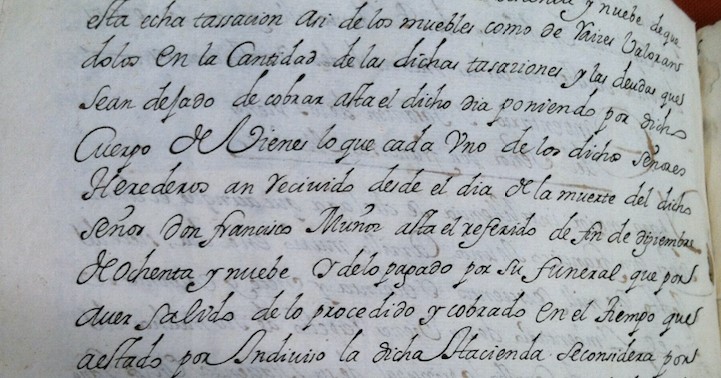 y nuebe de que
esta echa tassacion asi de los muebles como de Raizes Valorans
dolos en la Cantidad de las dichas tasaziones y las deudas ques
sean dejado de cobrar asta el dicho dia poniendo por dicho
Cuerpo de Vienes lo que cada Vno de los dichos señores
Herederos an recivido desde el dia de la muerte del dicho
señor Don francisco Muñoz asta el referido de fin de diziembre
de Ochenta y nuebe y de lo pagado por su funeral que por
aver salido de lo procedido y cobrado en el tiempo ques
aestado por Indiviso la dicha Hacienda seconsidera por